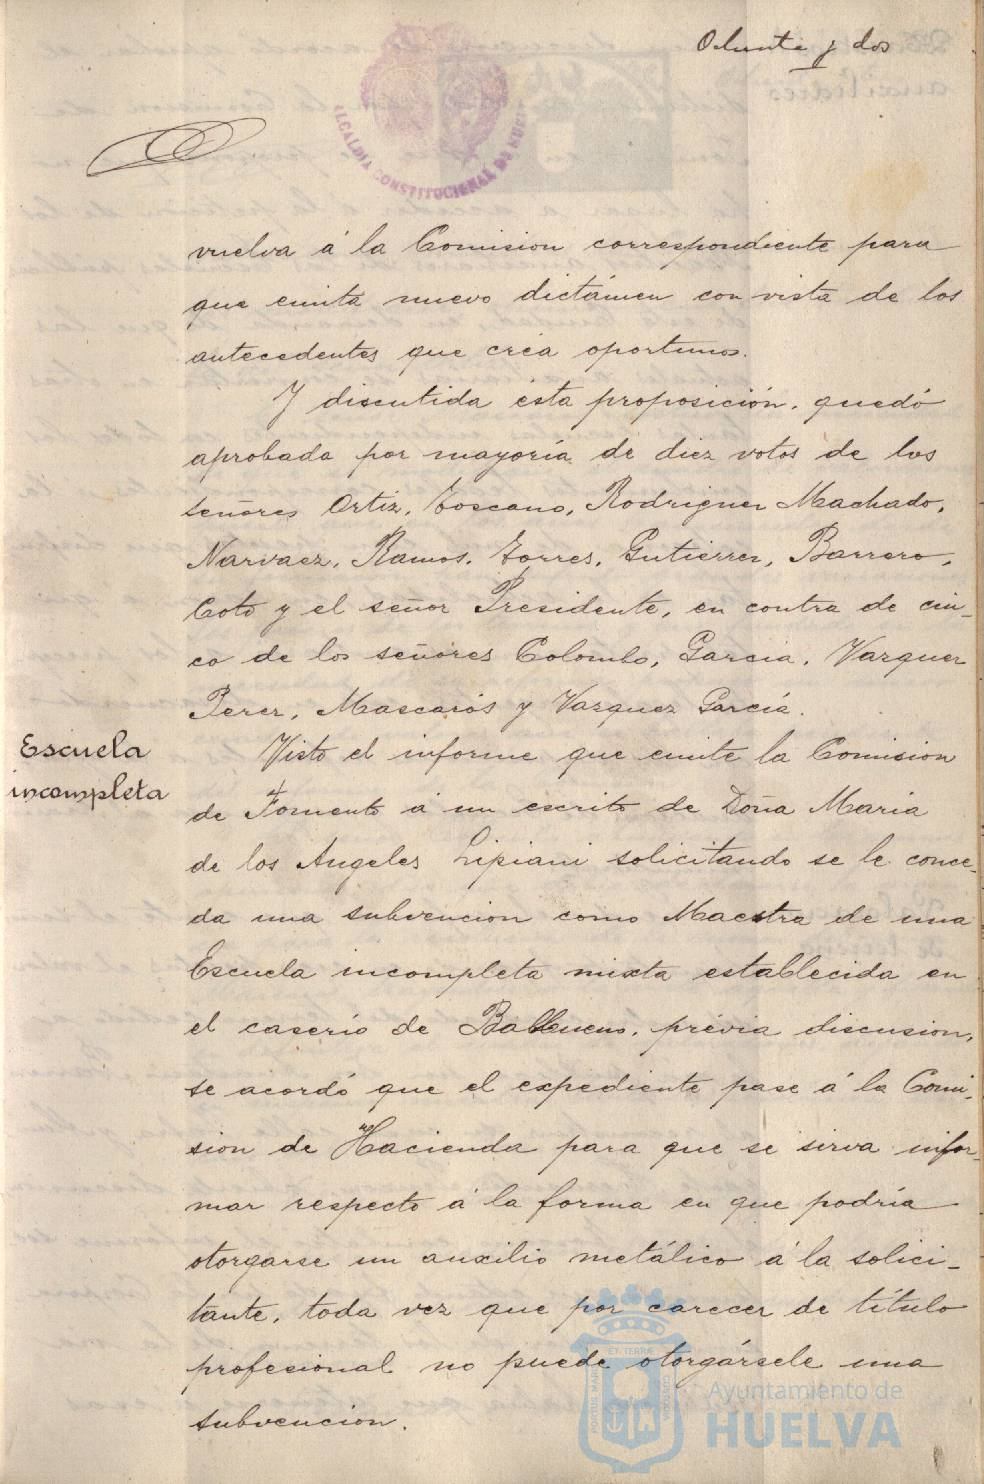 Ochenta y dos
ALCALDIA CONSTITUCIONAL DE HUEL
vuelva á la Comision correspondiente para
que emita nuevo dictámen con vista de los
antecedentes que créa oportunos.
Y discutida ésta proposición, quedó
aprobada por mayoría de diez votos de los
señores Ortiz, Toscano, Rodriguez Machado,
Narvaez, Ramos, Torres, Gutierrez, Barrero,
Coto y el señor Presidente, en contra de cin-
co de los señores Colombo, Garcia, Vazquez
Perez, Mascarós y Vazquez García.
Escuela
incompleta
Visto el informe que emite la Comision
de Fomento á un escrito de Doña Maria
de los Angeles Lipiani solicitando se le conce-
da una subvencion como Maestra de una
Escuela incompleta mixta establecida en
el caserío de prévia discusion,
se acordó que el expediente pase á la Comi-
sion de Hacienda para que se sirva infor-
mar respecto á la forma en que podría
otorgarse un auxilio metálico á la solici-
tante, toda vez que por carecer de título
profesional no puede otorgársele una
subvencion.
PORTUS MARIS
ET TERRÆ
CUSTODIA
Ayuntamiento de
HUELVA